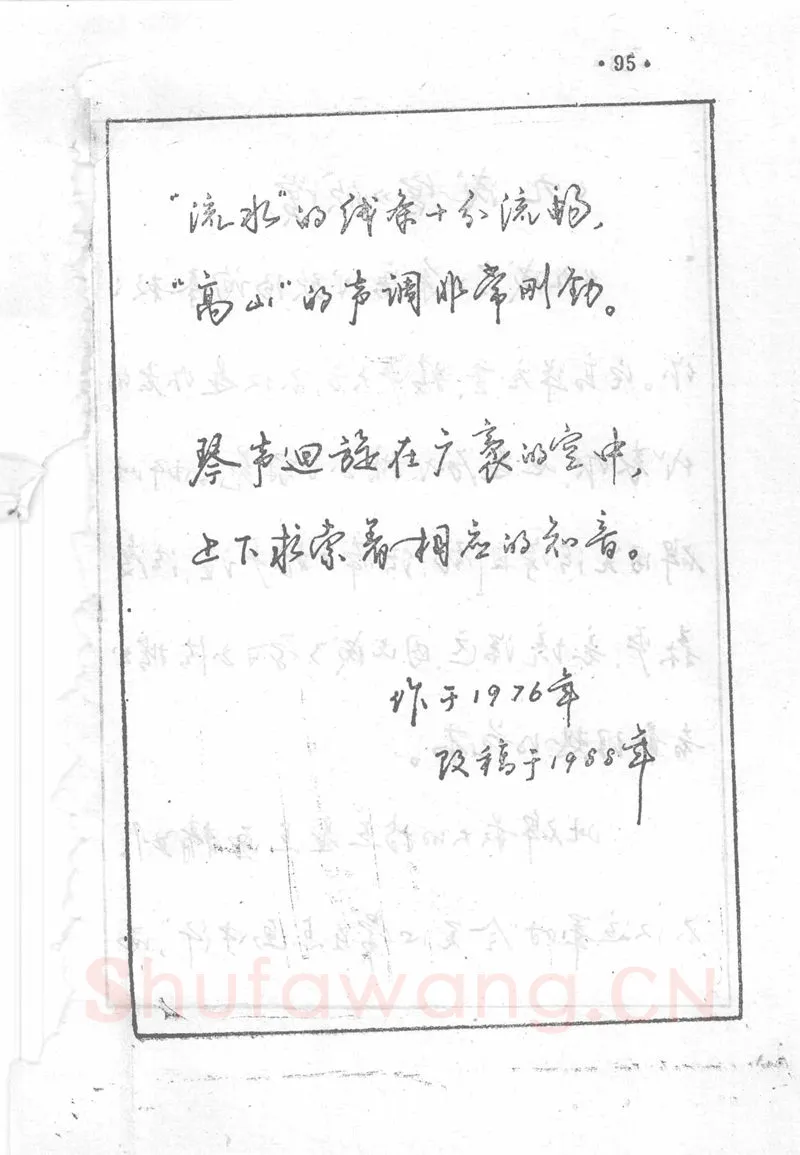 ·95·
“流水”的线条十分流畅，
“高山”的声调非常刚劲。
琴声迴旋在广袤的空中，
上下求索着相应的知音。
作于1976年
改稿于1988年
Shufawang.CN